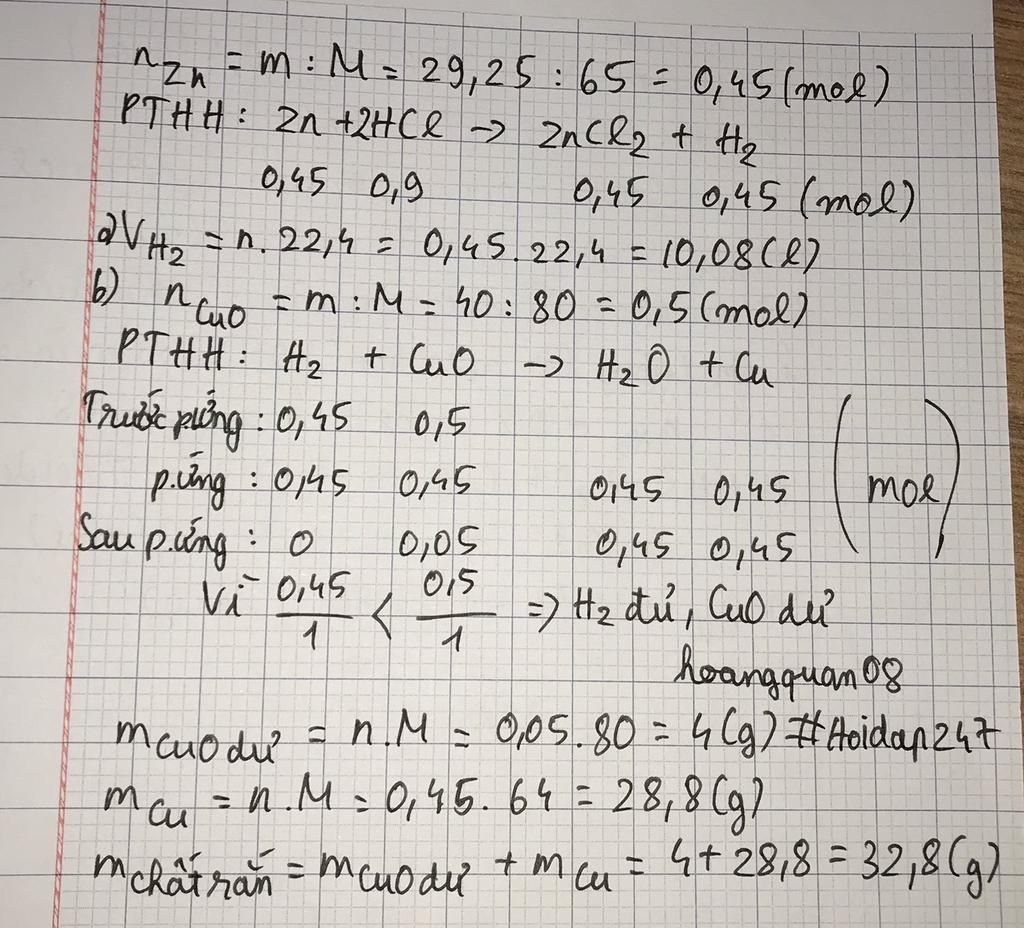 nZn = m : M = 29,25 : 65 = 0,45 (mol)
PTHH: Zn + 2HCl → ZnCl2 + H2
0,45 0,9 0,45 0,45 (mol)
a) VH2 = n. 22,4 = 0,45. 22,4 = 10,08 (l)
b) nCuO = m : M = 40 : 80 = 0,5 (mol)
PTHH: H2 + CuO → H2O + Cu
Trước p.ứng : 0,45 0,5
p.ứng : 0,45 0,45 0,45 0,45 (mol)
Sau p.ứng : 0 0,05 0,45 0,45
Vì 0,45/1 < 0,5/1 => H2 đủ, CuO dư
hoangquan08
mCuO dư = n.M = 0,05. 80 = 4 (g) #Hoidap247
mCu = n.M = 0,45. 64 = 28,8 (g)
mchất rắn = mCuO dư + mCu = 4 + 28,8 = 32,8 (g)